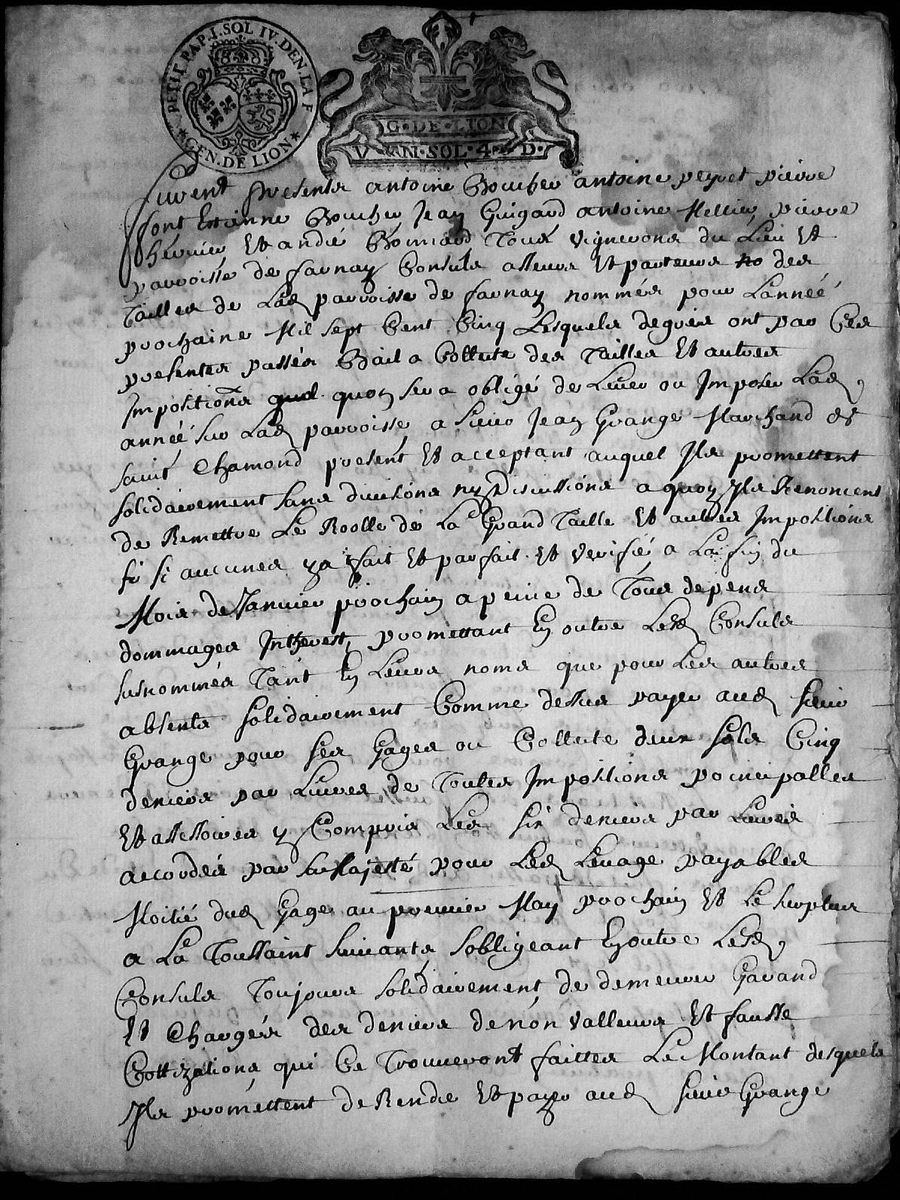 PETIT. PAP. I. SOL IV. DEN. LA F
GEN. DE LION
G · DE · LION
V · N · SOL · 4 · D ·
furent presents antoine Boucher antoine peyret pierre
font Estienne Boucher Jean Guigard antoine Mellier pierre
et andré Bonnard Tous vignerons du Lieu Et
parroisse de farnay Consuls asseurs Et parteurs des
Tailles de Lad parroisse de farnay nommés pour Lannée
prochaine Mil sept Cent Cinq Lesquels degrés ont par Ces
presentes passés Bail a Collecte des Tailles Et autres
Impositions quoy sera obligé de Lever ou Imposer Lad
année sur Lad parroisse a sieur Jean Grange Marchand de
saint Chamond present Et acceptant auquel Ils promettent
solidairement sans divisions ny discussions a quoy Ils Renoncent
de Remettre Le Roolle de La Grand Taille Et autres Impositions
si aucunes y a fait Et parfait Et verifié a La fin du
Mois de Janvier prochain a peine de Tous depens
dommages Intherest, promettant En outre Lesd Consuls
susnommés Tant En Leurs noms que pour Les autres
absents solidairement Comme dessus payer aud sieur
Grange pour ses Gages ou Collecte deux sols Cinq
deniers par Livres de Toutes Impositions principalles
Et assessoires y Compris Les six deniers par Livres
accordés par sa Majesté pour Led Levage payables
Moitié dud Gage au premier May prochain Et Le surplus
a La Toussaint suivants sobligeant En outre Lesd
Consuls Toujours solidairement de demeurer Garand
Et Chargés des deniers de non valleurs Et fausse
Cottizations qui Ce Trouveront faittes Le Montant desquels
Ils promettent de Rendre Et payer aud sieur Grange